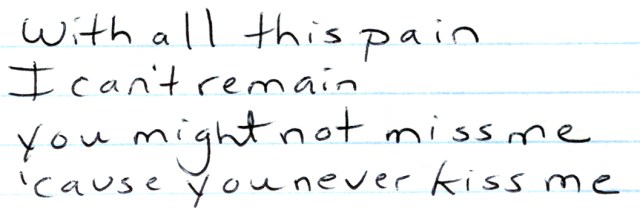 With all this pain
I can't remain
you might not miss me
'cause you never kiss me